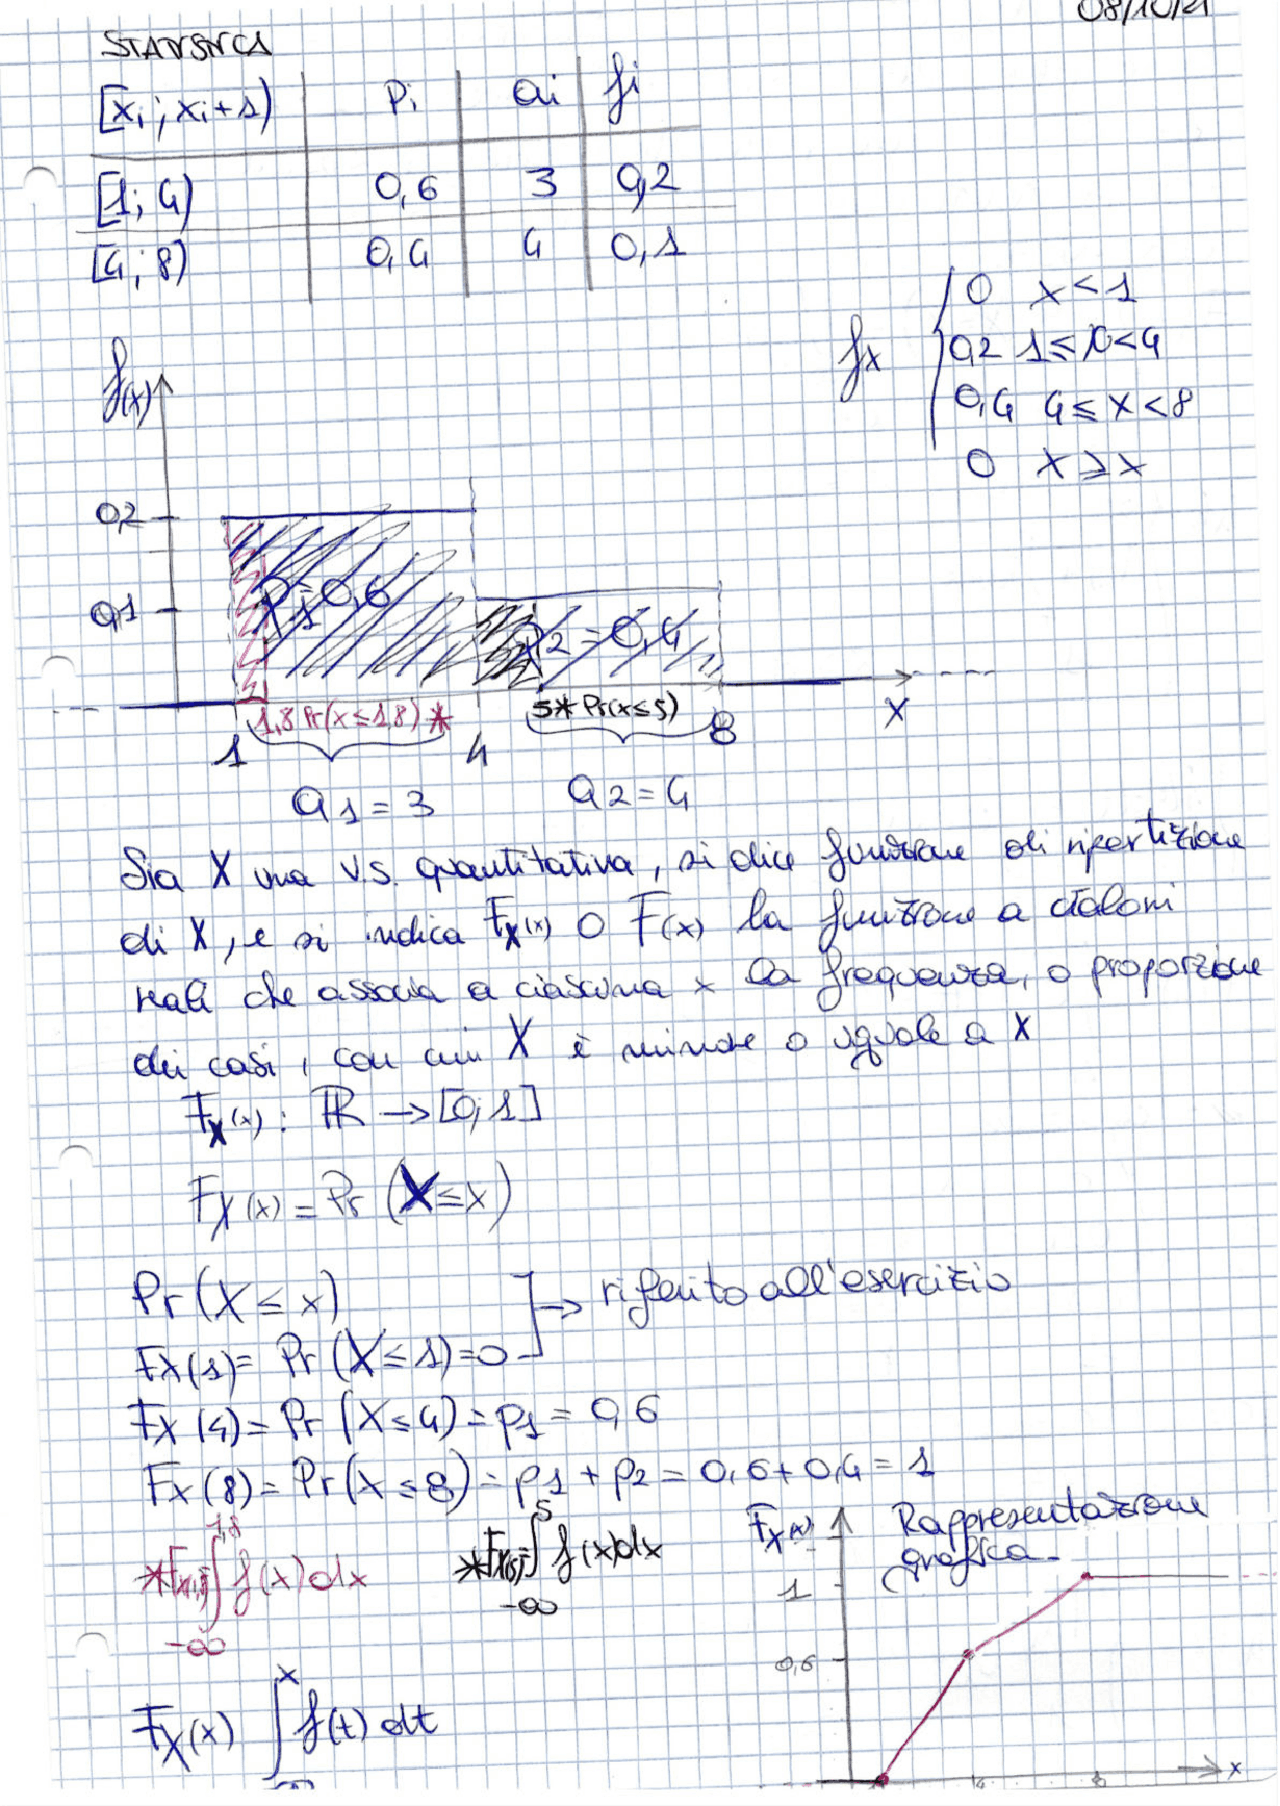 08/10/21
STATISTICA
[xi ; xi+1) pi ai fi
[1; 4) 0,6 3 0,2
[4; 8) 0,4 4 0,1
fx
0 x < 1
0,2 1 ≤ x < 4
0,4 4 ≤ x < 8
0 x ≥ x
f(x)
0,2
0,1
P1=0,6
P2 = 0,4
1,8 Pr(x≤1,8) *
5* Pr(x≤5)
x
1 4 8
a1 = 3 a2 = 4
Sia X una v.s. quantitativa, si dice funzione di ripartizione
di X, e si indica FX(x) o F(x) la funzione a valori
reali che associa a ciascuna x la frequenza, o proporzione
dei casi, con cui X è minore o uguale a X
FX(x) : ℝ → [0;1]
FX(x) = Pr (X ≤ x)
Pr (X ≤ x)
→ riferito all'esercizio
FX(1) = Pr (X ≤ 1) = 0
FX(4) = Pr (X ≤ 4) = p1 = 0,6
FX(8) = Pr (X ≤ 8) = p1 + p2 = 0,6 + 0,4 = 1
*FX(1,8)= ∫ -∞ 1,8 f(x) dx
*FX(5)= ∫ -∞ 5 f(x) dx
FX(x) Rappresentazione
grafica
1
0,6
4 8 x
FX(x) ∫ -∞ x f(t) dt